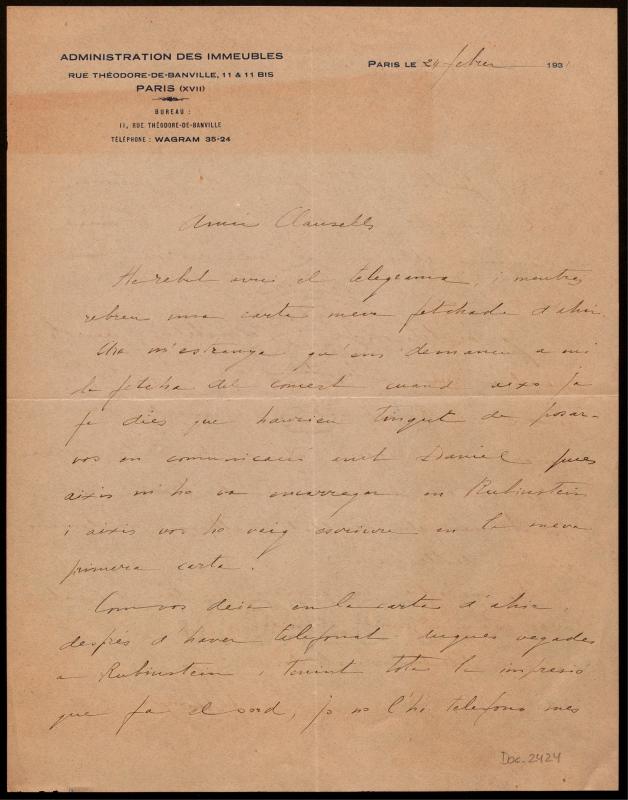 ADMINISTRATION DES IMMEUBLES
RUE THÉODORE-DE-BANVILLE, 11 & 11 BIS
PARIS (XVII)
BUREAU :
11, RUE THÉODORE-DE-BANVILLE
TÉLÉPHONE : WAGRAM 35-24
PARIS LE 24 febrer 1931
Amic Clausells
He rebut avui el telegrama, i mentres
rebreu una carta meva fetchada d'ahir.
Una m'estranya qu'em demaneu a mi
la fetcha del concert cuand aixo ja
fa dies que haurieu tingut de posar-
vos en comunicació amb Daniel pues
aixis m'ho va encarregar en Rubinstein
i aixis vos ho vaig escriure en la meva
primera carta.
Com vos deia en la carta d'ahir,
després d'haver telefonat vegades
a Rubinstein i tenint tota la impresió
que fa el sord, jo no l'hi telefono mes
Doc. 2424